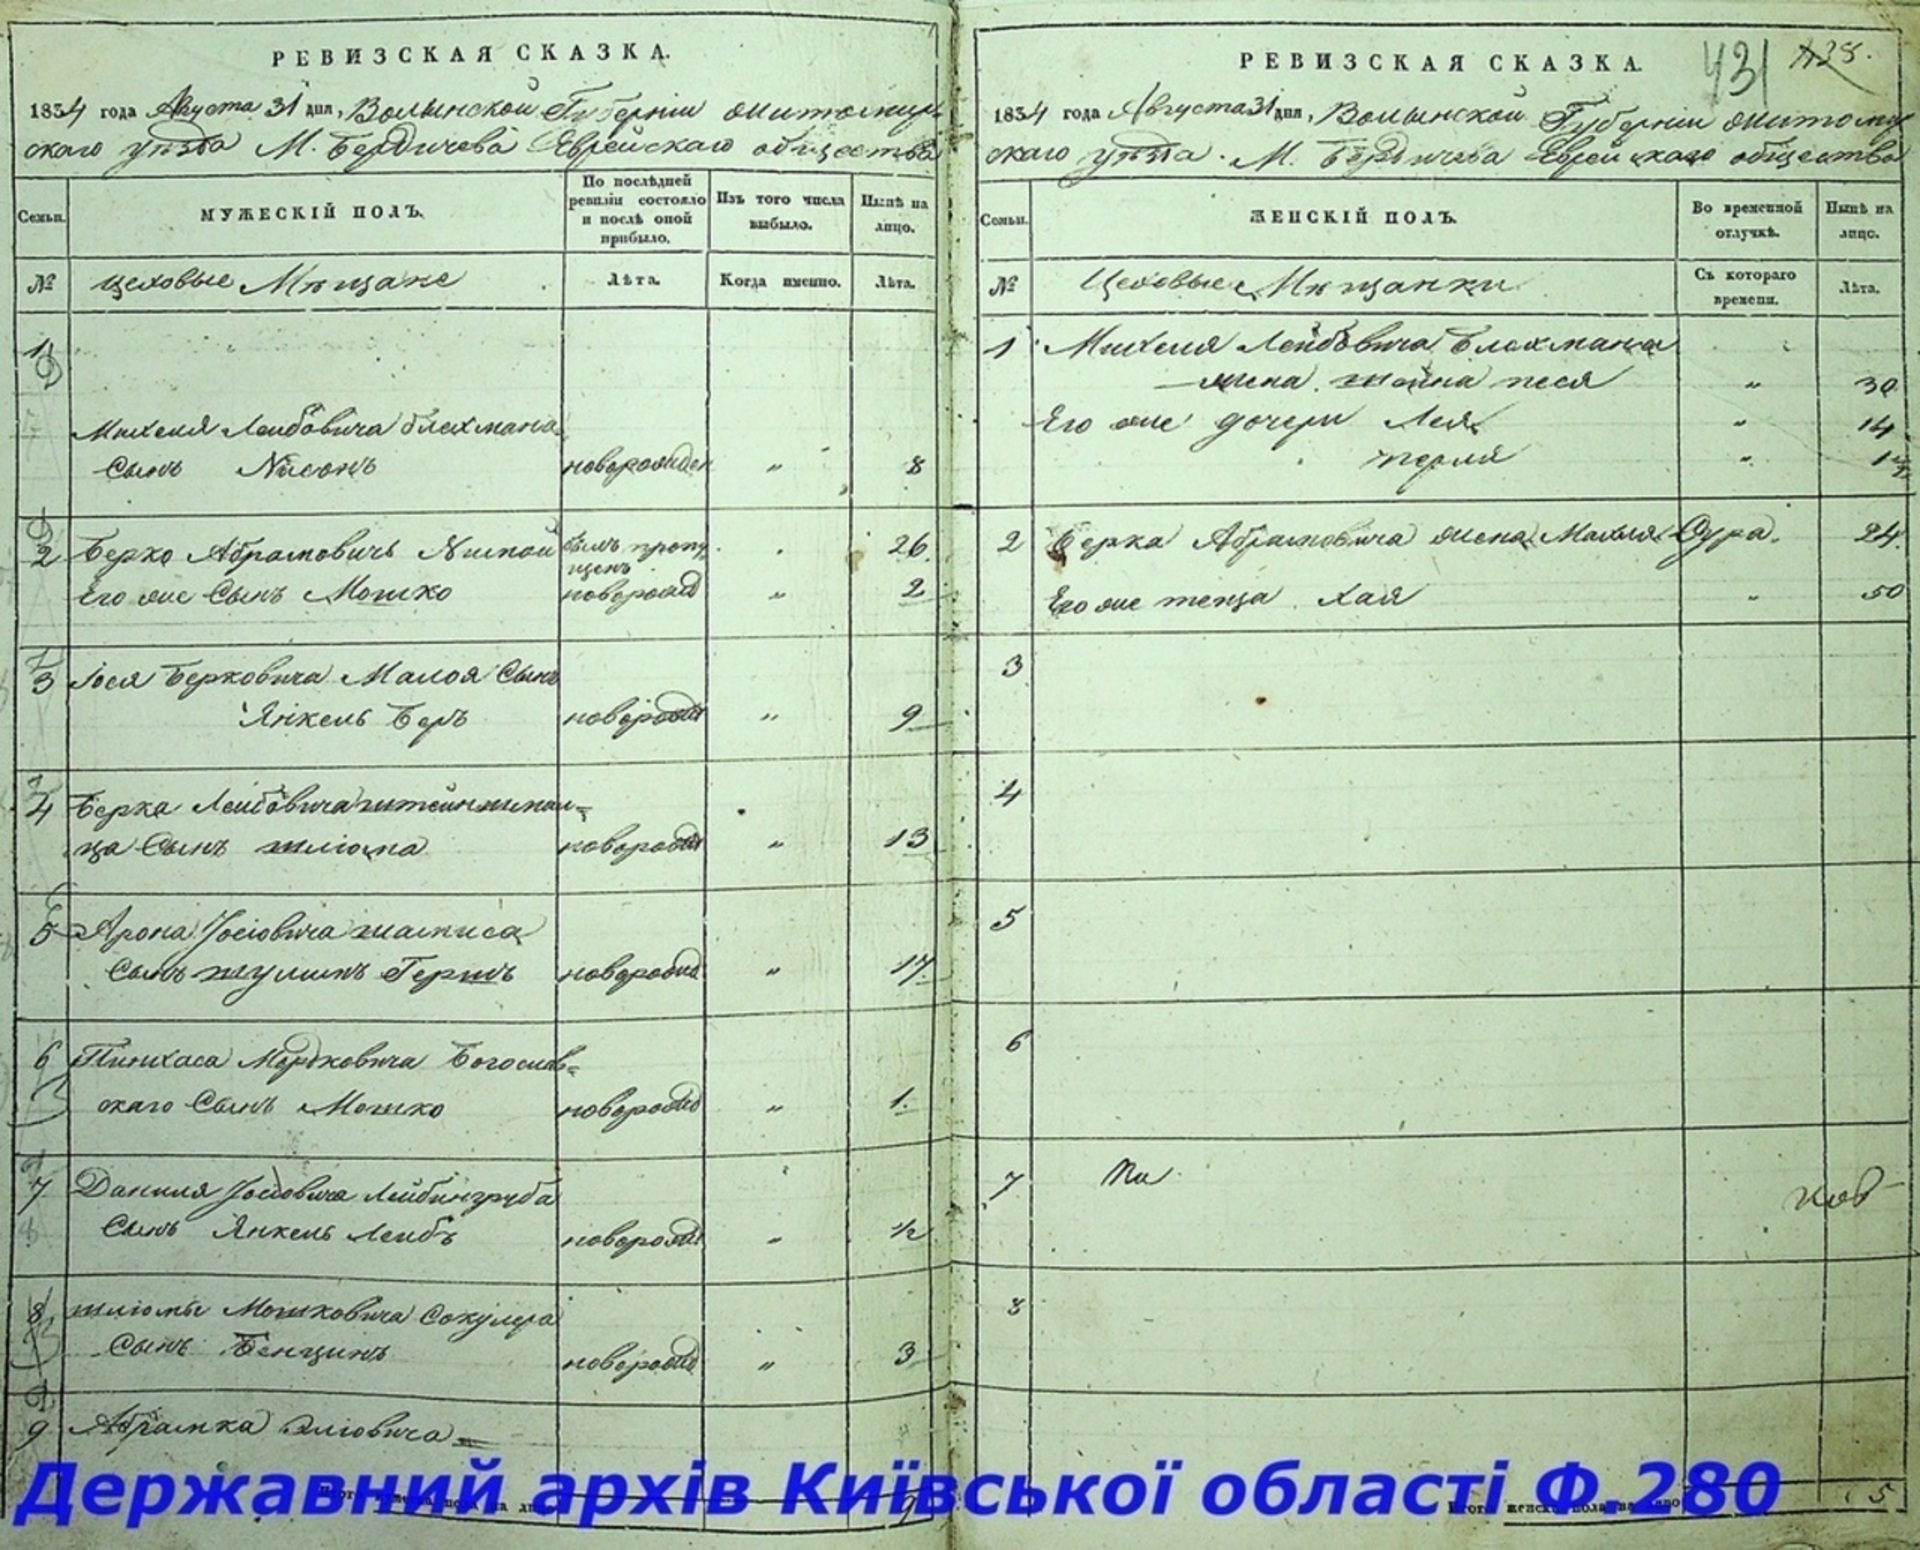 РЕВИЗСКАЯ СКАЗКА.
1834 года Августа 31 дня, Волынской Губерніи Житомир-
скаго уѣзда М. Бердичева Еврейскаго общества
Семьи.
МУЖЕСКІЙ ПОЛЪ.
По послѣдней ревизіи состояло и послѣ оной прибыло.
Изъ того числа выбыло.
Нынѣ на лицо.
№
Цеховые Мѣщане
Лѣта.
Когда именно.
Лѣта.
1
Михеля Лейбовича Блахмана
Сынъ Нисонъ новорожден " 8
2 Берко Абрамовичъ былъ пропущенъ 26
Его же Сынъ Мошко новорожд " 2
3 Іося Берковича Малоя Сынъ
Янкель Беръ новорожд " 9
4 Берка Лейбовича
ца Сынъ Шліома новорожд " 13
5 Арона Іосіовича
Сынъ Шулимъ Гершъ новорожд " 17
6 Пинхаса Мордковича Богослов-
скаго Сынъ Мошко новорожд " 1.
7 Даниля Іосіовича Лейбингруба
Сынъ Янкель Лейбъ новорожд " 1/2
8 Шліомы Мошковича Сокуляра
Сынъ Бенцинъ новорожд " 3
9 Абрамка Эліовича
9
РЕВИЗСКАЯ СКАЗКА.
431
1834 года Августа 31 дня, Волынской Губерніи Житомир
скаго уѣзда. М. Бердичева Еврейскаго общества
Семьи.
ЖЕНСКІЙ ПОЛЪ.
Во временной отлучкѣ.
Нынѣ на лицо.
№
Цеховые Мѣщанки
Съ котораго времени.
Лѣта.
1 Михеля Лейбовича Блахмана
жена Шейна Песя " 30
Его же дочери Лея " 14
Перля "
2 Берка Абрамовича жена Малья Сура 24.
Его же теща Хая " 50
3
4
5
6
7
8
Итого женска пола на лицо 5
Державний архів Київської області Ф.280